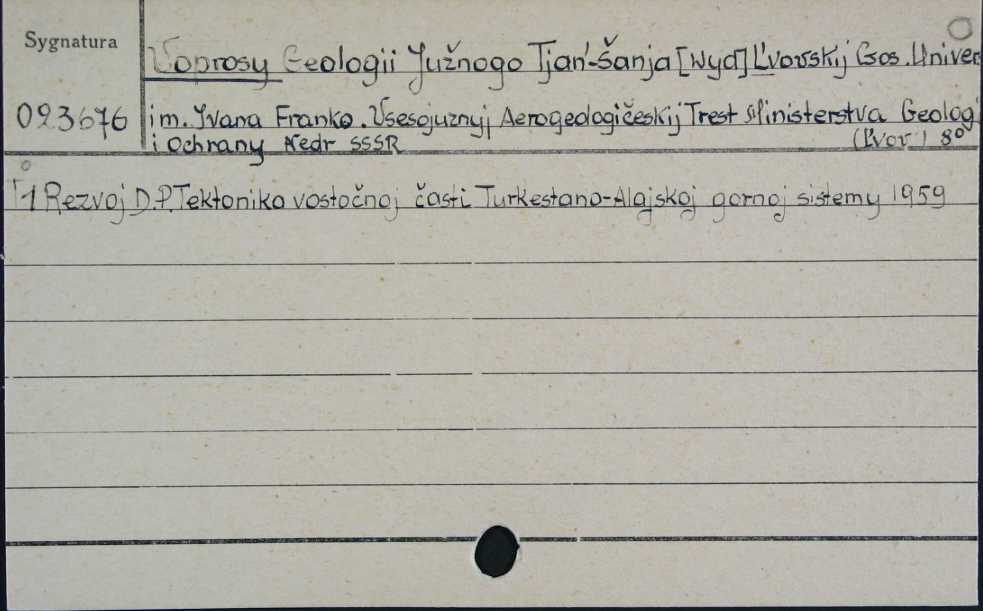 Sygnatura
Voprosy Geologii Južnogo Tjań-Šanja [Wyd] L'vovskij Gos. Univer
093676 im. Ivana Franko. Vsesojuznyj Aerogeologičeskij Trest Ministerstva Geolog
i Ochrany Nedr SSSR (L'vov) 8°
1 Rezvoj D.P. Tektonika vostočnoj časti Turkestano-Alajskoj gornoj sistemy 1959